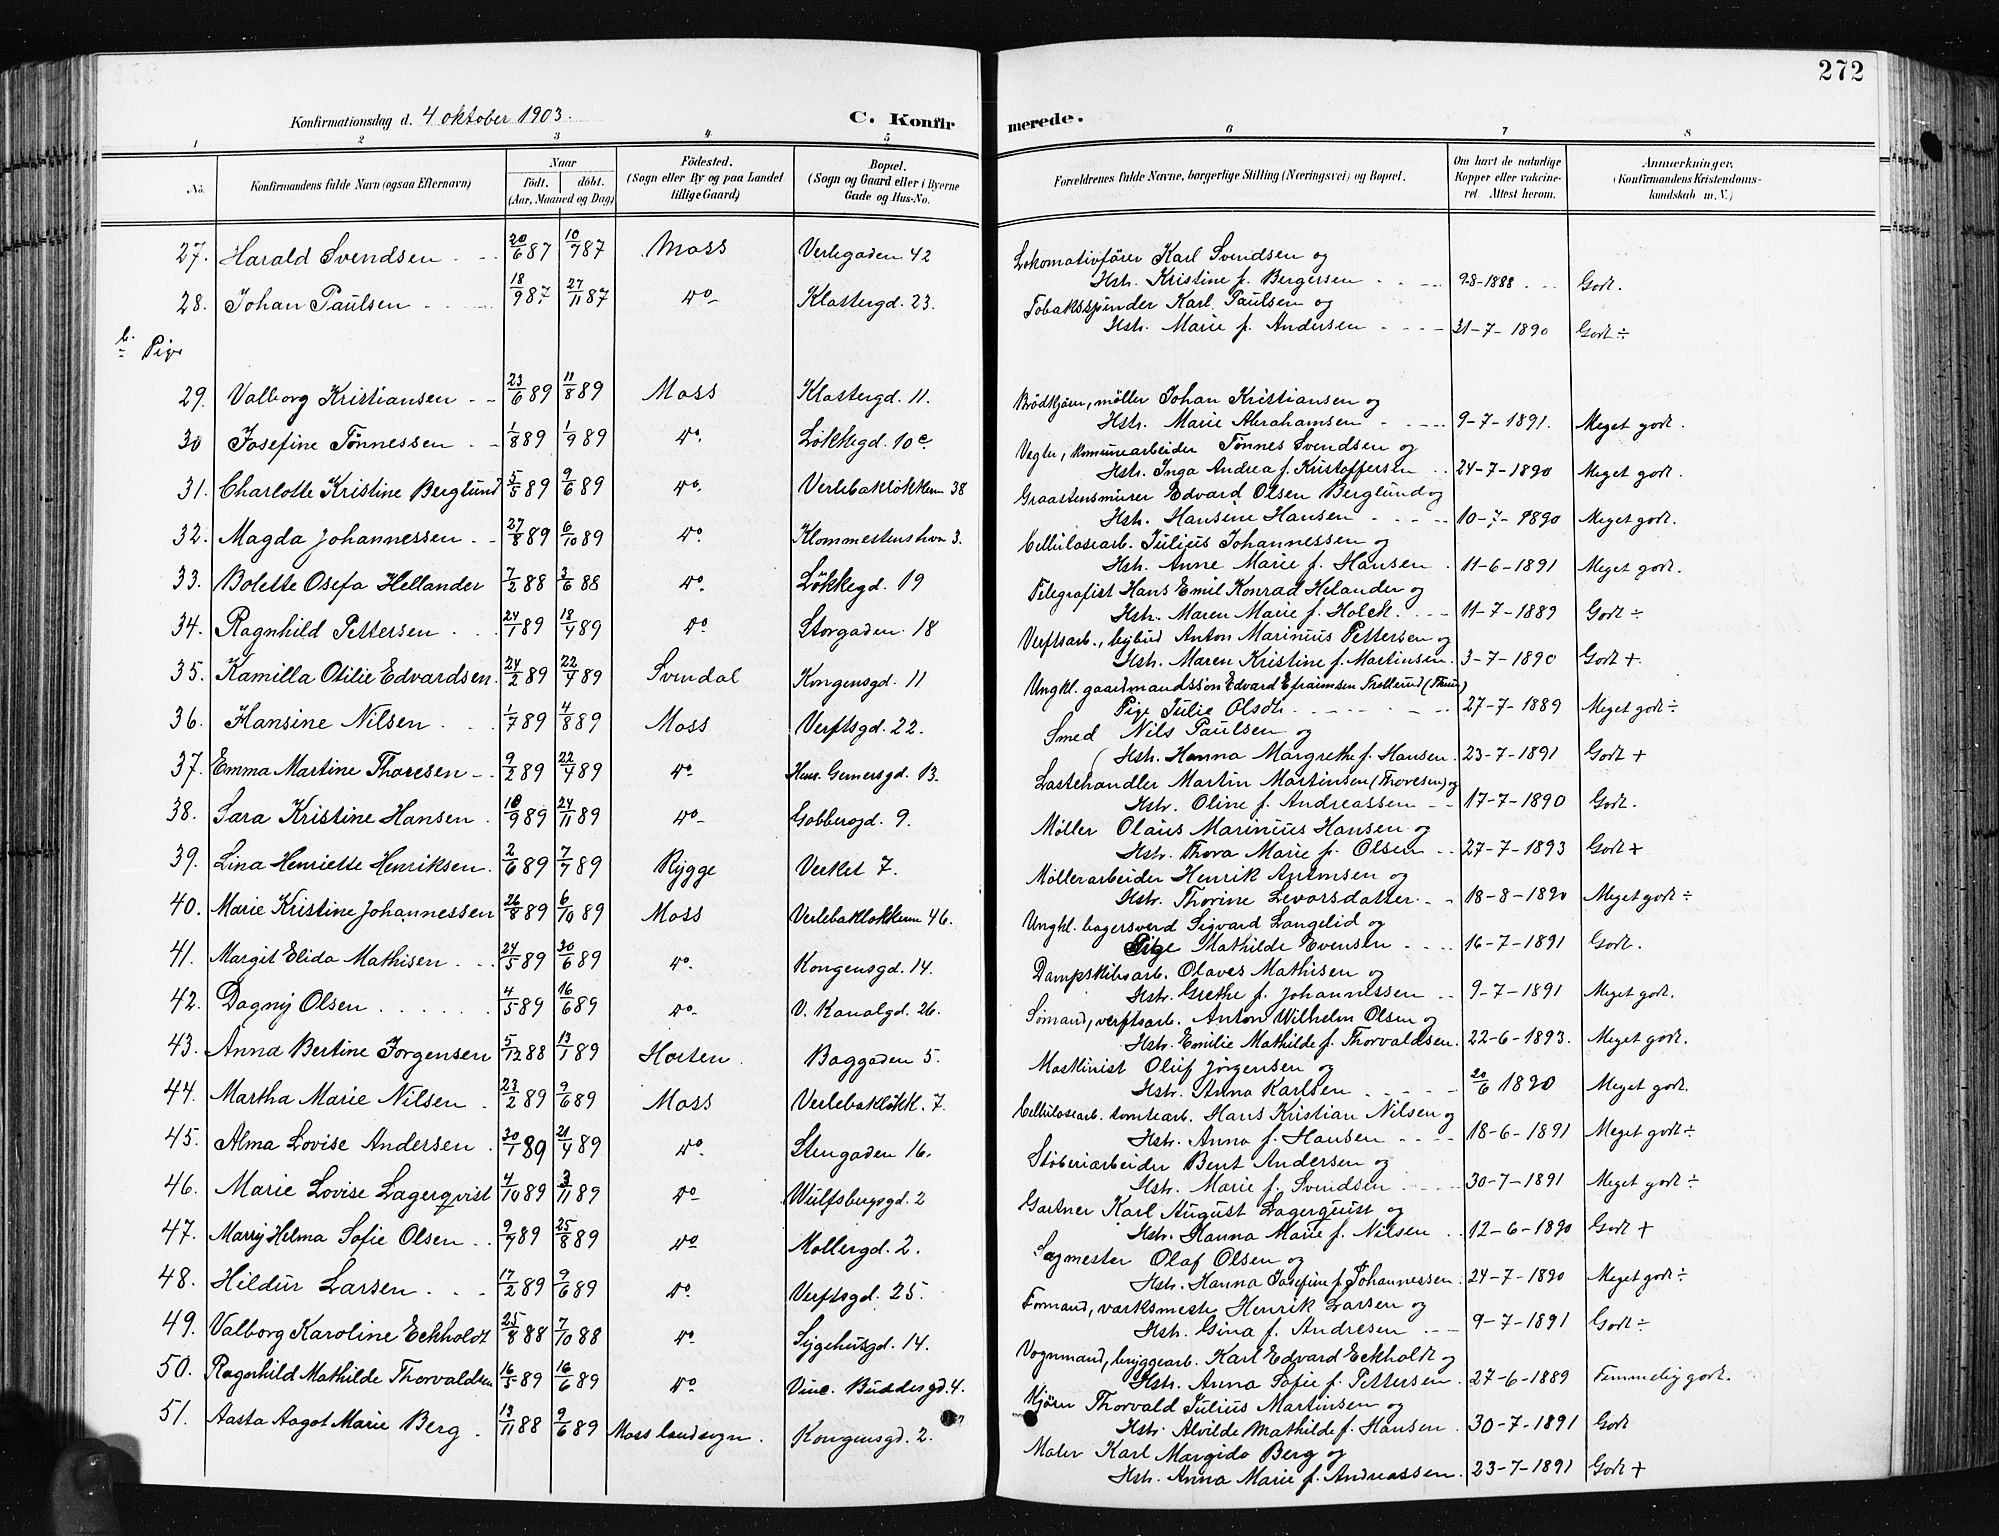 272
Konfirmationsdag d. 4 oktober 1903. C. Konfirmerede.
1 2 3 4 5 6 7 8
No. Konfirmandens fulde Navn (ogsaa Efternavn) Naar födt. döbt. (Aar, Maaned og Dag) Födested. (Sogn eller By og paa Landet tillige Gaard) Bopæl. (Sogn og Gaard eller i Byerne Gade og Hus-No. Forældrenes fulde Navne, borgerlige Stilling (Næringsvei) og Bopæl. Om havt de naturlige Kopper eller vakcineret. Attest herom. Anmærkninger. (Konfirmandens Kristendomskundskab m. V.)
27. Harald Svendsen 20/6 87 10/7 87 Moss Verlegaden 42 Lokomativfører Karl Svendsen og
Hstr. Kristine f. Bergersen 9-8-1888 Godt.
28. Johan Paulsen 18/9 87. 27/11 87 Do Klostergd. 23. Tobaksspinder Karl Paulsen og
Hstr. Marie f. Andersen 31-7-1890 Godt ÷
b. Pige
29. Valborg Kristiansen 23/6 89 11/8 89 Moss Klostergd. 11. Brødkjører, møller Johan Kristiansen og
Hstr. Marie Abrahamsen 9-7-1891. Meget godt.
30 Josefine Tønnessen 1/8 89 1/9 89 Do. Løkkegd. 10c Vegter, komunearbeider Tønnes Svendsen og
Hstr. Inga Andrea f. Kristoffersen 24-7-1890 Meget godt.
31. Charlotte Kristine Berglund 5/5 89 9/6 89 Do. Verlebakløkken 38 Graastensmurer Edvard Olsen Berglund og
Hstr. Hansine Hansen 10-7-1890 Meget godt.
32. Magda Johannessen 27/8 89 6/10 89 Do. Klommestenshvn 3. Celluloseearb. Julius Johannessen og
Hstr. Anne Marie f. Hansen 11-6-1891 Meget godt.
33. Bolette Osefa Hellander 7/2 88 3/6 88 Do. Løkkegd. 19 Telegrafist Hans Emil Konrad Helander og
Hstr. Maren Marie f. Holck 11-7-1889 Godt ÷
34. Ragnhild Pettersen 24/1 89 18/4 89 Do Storgaden 18 Verftsarb., bybud Anton Marinius Pettersen og
Hstr. Maren Kristine f. Martinsen. 3-7-1890 Godt +
35. Kamilla Otilie Edvardsen 24/2 89 22/4 89 Svindal Kongensgd. 11 Ungkl. gaardmandssøn Edvard Efraimsen Trollerud
Pige Julie Olsdtr. 27-7-1889 Meget godt ÷
36. Hansine Nilsen 1/7 89 4/8 89 Moss Verftsgd. 22. Smed Nils Paulsen og
Hstr. Hanna Margrethe f. Hansen 23-7-1891 Godt +
37. Emma Martine Thoresen 9/2 89 22/4 89 Do. Henr. Gernersgd. 13. Lastehandler Martin Martinsen (Thoresen) og
Hstr. Oline f. Andreassen 17-7-1890 Godt.
38. Sara Kristine Hansen 10/9 89 24/11 89 Do Gobbergd. 9. Møller Olaus Marinius Hansen og
Hstr. Thora Marie f. Olsen 27-7-1893 Godt +
39. Lina Henriette Henriksen. 2/6 89 7/7 89 Rygge Verket 7. Møllerarbeider Henrik Antonsen og
Hstr. Thorine Levorsdatter 18-8-1890 Meget godt ÷
40. Marie Kristine Johannessen 26/8 89 6/10 89 Moss Verlebakløkken 46. Ungkl. bagersvend Sigvard Langelid og
Pige Mathilde Evensen 16-7-1891 Godt.
41. Margit Elida Mathisen 24/5 89 30/6 89 Do. Kongensgd. 14. Dampskibsarb. Olaves Mathisen og
Hstr. Grethe f. Johannessen 9-7-1891 Meget godt.
42. Dagny Olsen 4/5 89 16/6 89 Do. V. Kanalgd. 26. Sømand, verftsarb. Anton Wilhelm Olsen og
Hstr. Emilie Mathilde f. Thorvaldsen. 22-6-1893. Meget godt.
43. Anna Bertine Jørgensen 5/12 88 13/1 89 Horten. Baggaden 5. Maskinist Oluf Jørgensen og
Hstr. Anna Karlsen 20/6 1890 Meget godt.
44. Martha Marie Nilsen 23/2 89 9/6 89 Moss Verlebakløkk. 7. Celluloseearb. tomtearb. Hans Kristian Nilsen og
Hstr. Anna f. Hansen 18-6-1891 Meget godt ÷
45. Alma Lovise Andersen 30/1 89 21/4 89 Do. Stengaden 16. Støberiarbeider Bent Andersen og
Hstr. Marie f. Svendsen 30-7-1891 Meget godt ÷
46. Marie Lovise Lagerqvist 4/10 89 3/11 89 Do Wulfsbergsgd. 2 Gartner Karl August Lagerquist og
Hstr. Hanna Marie f. Nilsen 12-6-1890 Godt +
47. Marry Helma Sofie Olsen 9/7 89 25/8 89 Do Møllergd. 2. Sagmester Olaf Olsen og
Hstr. Hanna Josefine f. Johannessen 24-7-1890 Meget godt ÷
48. Hildur Larsen 17/2 89 9/6 89 Do. Verftsgd. 25. Formand, værksmester Henrik Larsen og
Hstr. Gina f. Andresen 9-7-1891 Godt ÷
49. Valborg Karoline Eckholdt 25/8 88 7/10 88 Do. Sygehusgd. 14. Vognmand, bryggearb. Karl Edvard Eckholdt og
Hstr. Anna Sofie f. Pettersen 27-6-1889 Temmelig godt.
50. Ragnhild Mathilde Thorvaldsen 16/5 89 16/6 89 Do Vinc. Buddesgd. 4. Kjører Thorvald Julius Martinsen og
Hstr. Alvilde Mathilde f. Hansen 30-7-1891 Godt
51. Aasta Aagot Marie Berg 13/11 88 9/6 89 Moss landsogn. Kongensgd. 2. Maler Karl Margido Berg og
Hstr. Anna Marie f. Andreassen 23-7-1891 Godt +